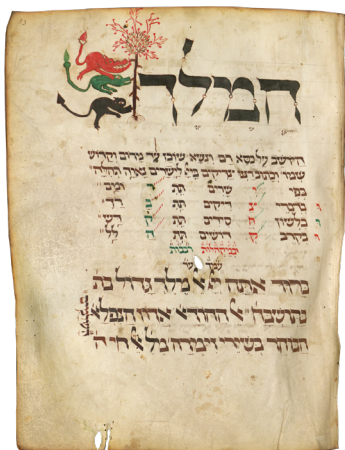 המלך
היושב על כסא רם ונשא שוכן עד מרום וקדוש
שמו וכתוב רננו צדיקים ביי לישרים נאוה תהלה
בפי ישרים תת רומם
ובדברי צדיקים תת ברך
ובלשון חסידים תת קדש
ובקרב קדושים תת הלל
במקהלות רבבות
ברוך אתה יי אל מלך גדול בת
בתושבחות אל ההודאות אדון הנפלאות
הבוחר בשירי זימרה מלך אל חי ה